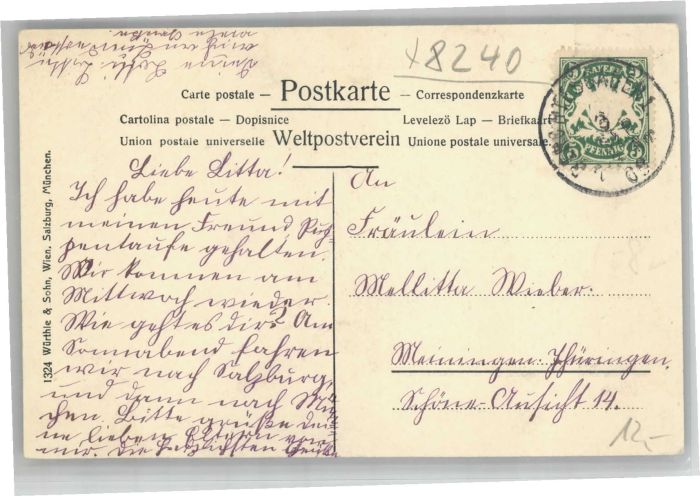 x8240
Carte postale – Postkarte – Correspondenzkarte
Cartolina postale – Dopisnice Levelezö Lap – Briefkaart
Union postale universelle Weltpostverein Unione postale universale
BAYERN
5 PFENNIG 5
1324 Würthle & Sohn, Wien, Salzburg, München.
Liebe Litta!
Ich habe heute mit
meinen Freund Pup-
pentaufe gehalten.
Wir kommen am
Mittwoch wieder.
Wie geht es dir? Am
Sonnabend fahren
wir nach Salzburg,
und dann nach Mün-
chen. Bitte grüße dei-
ne lieben Eltern von
mir. Die herzlichsten
An
Fräulein
Mellitta Wieber.
Meiningen. Thüringen.
Schöne-Aussicht 14.
12,-